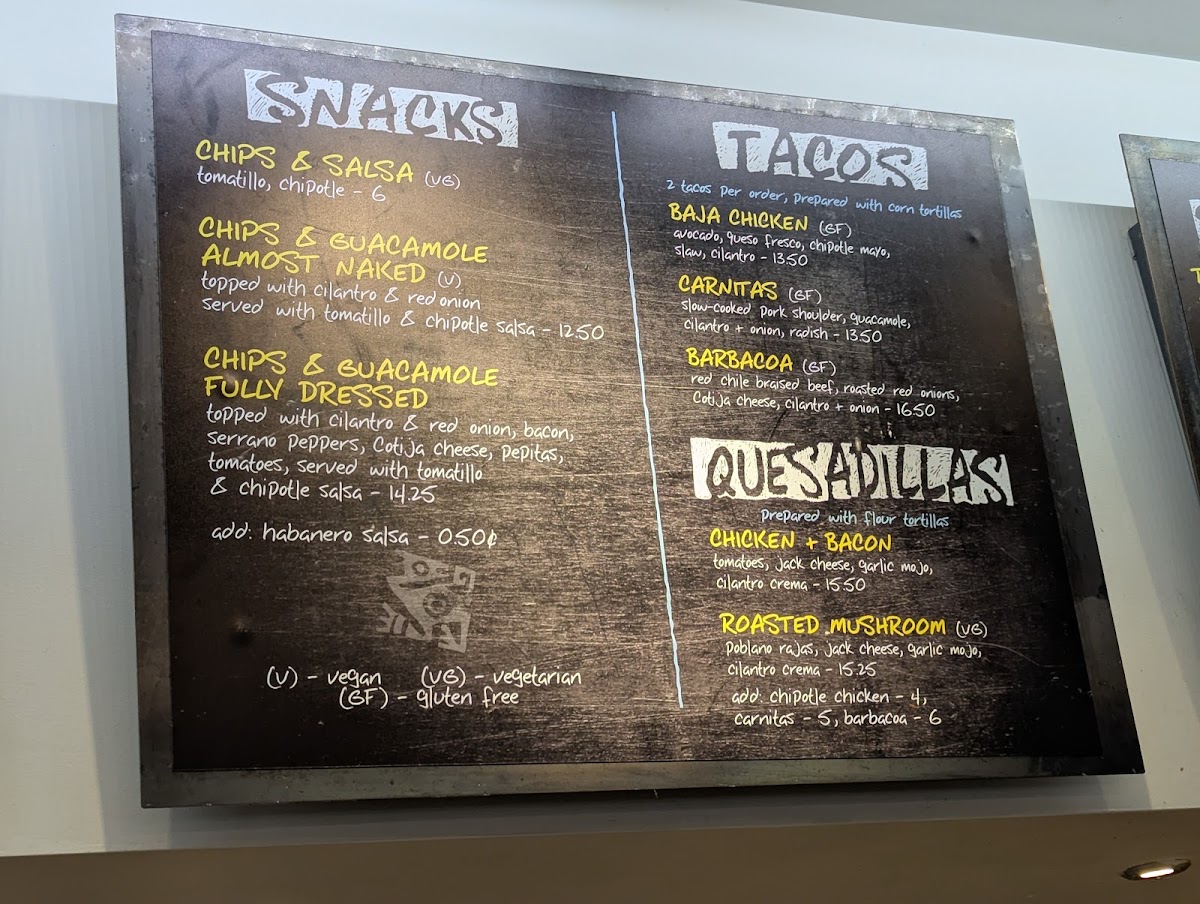 SNACKS
CHIPS & SALSA (VG)
tomatillo, chipotle - 6
CHIPS & GUACAMOLE
ALMOST NAKED (V)
topped with cilantro & red onion
served with tomatillo & chipotle salsa - 12.50
CHIPS & GUACAMOLE
FULLY DRESSED
topped with cilantro & red onion, bacon,
serrano peppers, Cotija cheese, pepitas,
tomatoes, served with tomatillo
& chipotle salsa - 14.25
add: habanero salsa - 0.50¢
(V) - vegan (VG) - vegetarian
(GF) - gluten free
TACOS
2 tacos per order, prepared with corn tortillas
BAJA CHICKEN (GF)
avocado, queso fresco, chipotle mayo,
slaw, cilantro - 13.50
CARNITAS (GF)
slow-cooked pork shoulder, guacamole,
cilantro + onion, radish - 13.50
BARBACOA (GF)
red chile braised beef, roasted red onions,
Cotija cheese, cilantro + onion - 16.50
QUESADILLAS
Prepared with flour tortillas
CHICKEN + BACON
tomatoes, jack cheese, garlic mojo,
cilantro crema - 15.50
ROASTED MUSHROOM (VG)
poblano rajas, jack cheese, garlic mojo,
cilantro crema - 15.25
add: chipotle chicken - 4,
carnitas - 5, barbacoa - 6